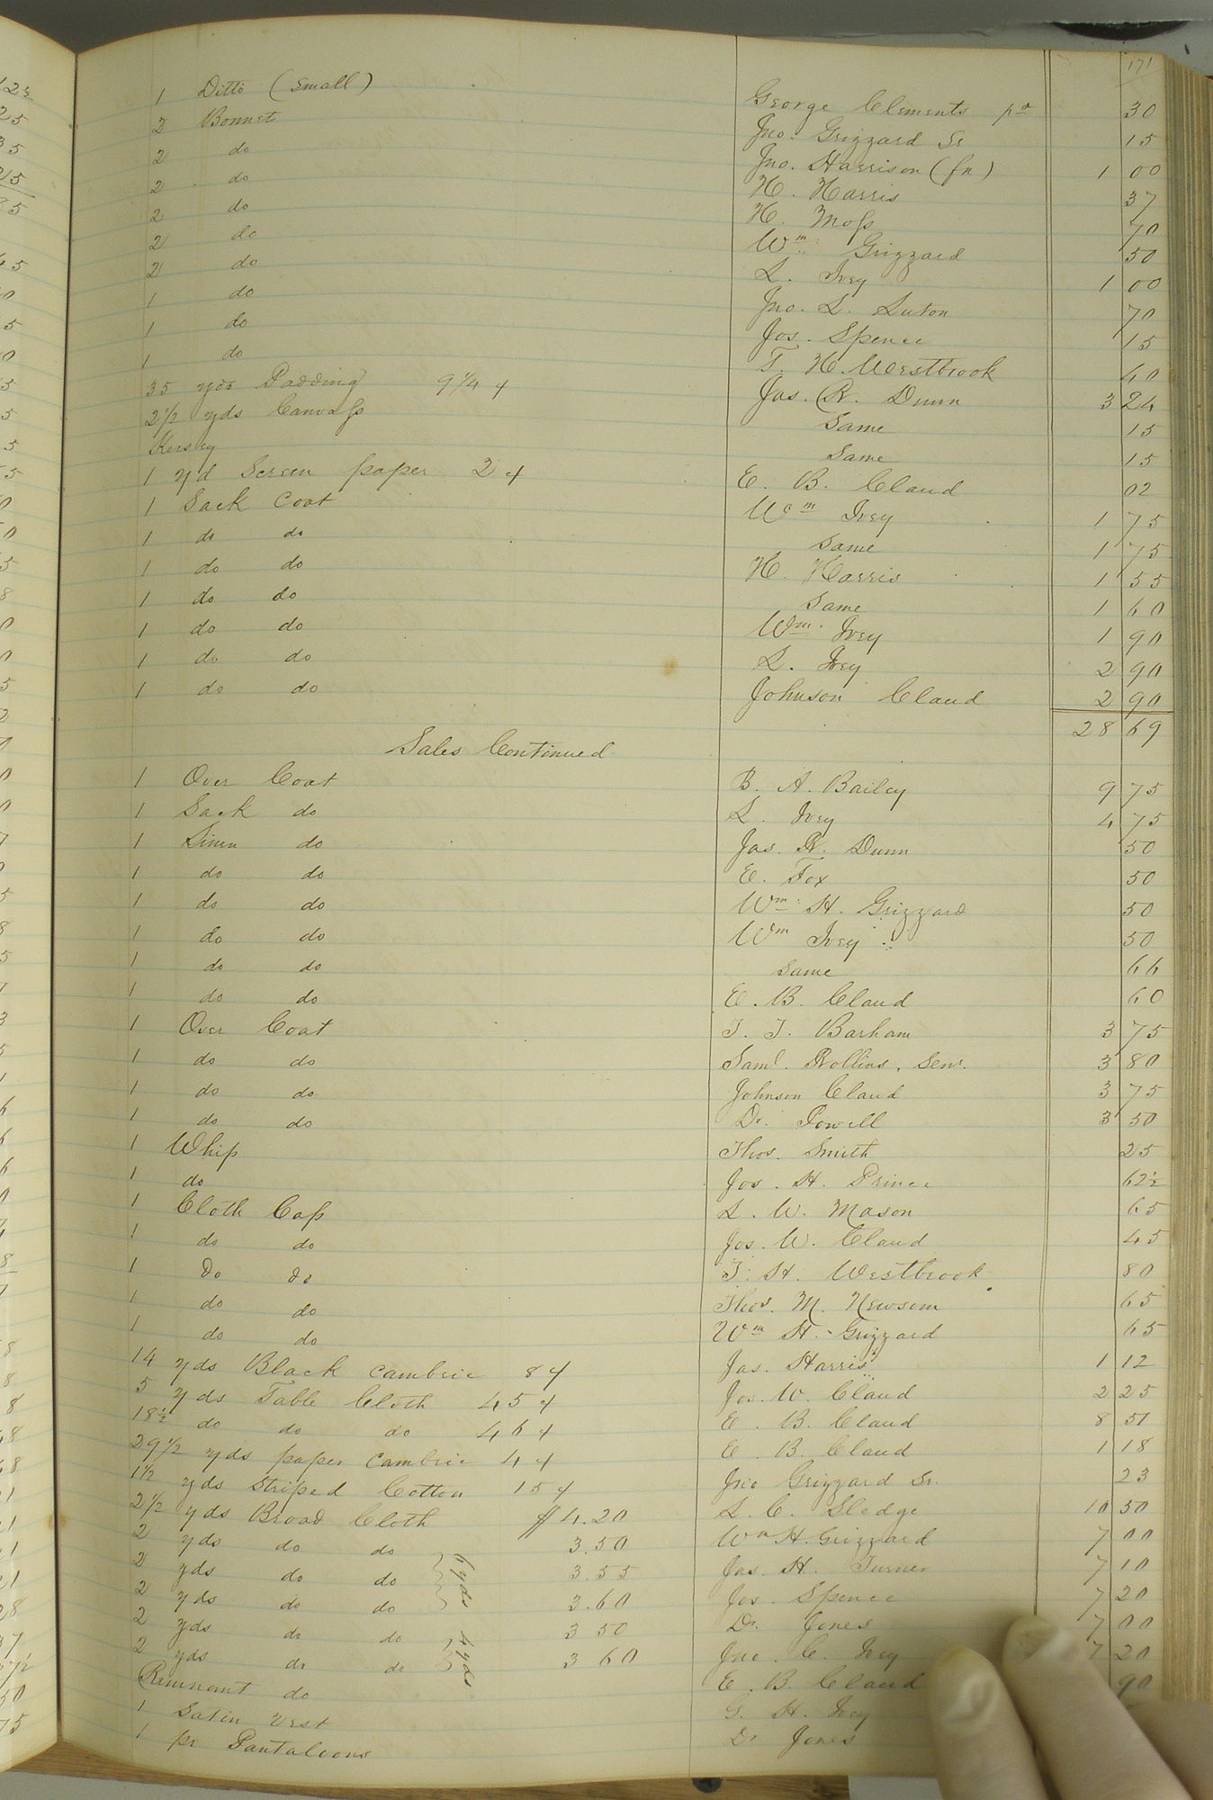 171
1 Ditto (Small) George Clements pd 30
2 Bonnet Jno. Grizzard Sr 15
2 do Jno. Harrison (fn) 1 00
2 do H. Harris 37
2 do H. Moss 70
2 do Wm Grizzard 50
2 do L. Ivey 1 00
1 do Jno. L. Luton 70
1 do Jos. Spence 15
1 do T. H. Westbrook 40
35 yds Padding 9 1/4 Jas. R. Dunn 3 24
2 1/2 yds Canvass Same 15
Kersey Same 15
1 yd Screen paper 2 E. B. Claud 02
1 Sack Coat Wm Ivey 1 75
1 do do Same 1 75
1 do do H. Harris 1 55
1 do do Same 1 60
1 do do Wm. Ivey 1 90
1 do do L. Ivey 2 90
1 do do Johnson Claud 2 90
28 69
Sales Continued
1 Over Coat B. A. Bailey 9 75
1 Sack do L. Ivey 4 75
1 Linen do Jas. R. Dunn 50
1 do do E. Fox 50
1 do do Wm. H. Grizzard 50
1 do do Wm Ivey 50
1 do do Same 66
1 do do E. B. Claud 60
1 Over Coat T. J. Barham 3 75
1 do do Saml. Rollins, Senr. 3 80
1 do do Johnson Claud 3 75
1 do do Dr. Powell 3 50
1 Whip Thos. Smith 25
1 do Jos. H. Prince 62 1/2
1 Cloth Cap L. W. Mason 65
1 do do Jos. W. Claud 45
1 Do do T. H. Westbrook 80
1 do do Thos. M. Newsom 65
1 do do Wm H. Grizzard 65
14 yds Black cambric 8 Jas. Harris 1 12
5 yds Table Cloth 45 Jos. W. Claud 2 25
18 1/2 do do do 46 E. B. Claud 8 51
29 1/2 yds paper cambric 4 E. B. Claud 1 18
1 1/2 yds Striped Cotton 15 Jno Grizzard Sr. 23
2 1/2 yds Broad Cloth $4.20 L. C. Sledge 10 50
2 yds do do 3.50 Wm H. Grizzard 7 00
2 yds do do 6 yds 3.55 Jas. H. Turner 7 10
2 yds do do 3.60 Jos. Spence 7 20
2 yds do do 3 50 Dr. Jones 7 00
2 yds do do 4 yds 3 60 Jno. C. Ivey 7 20
Remnant do E. B. Claud 90
1 Satin Vest G. H. Ivey
1 pr Pantaloons Dr Jones